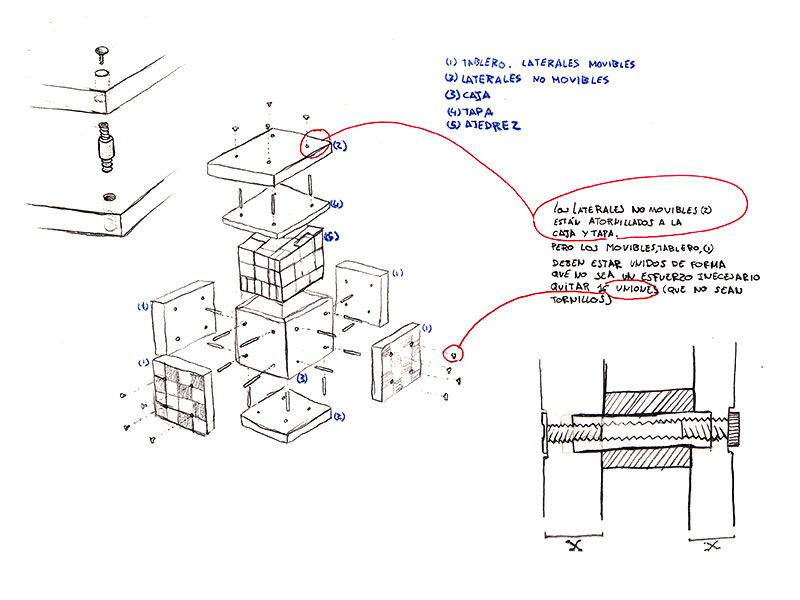 (1) TABLERO. LATERALES MOVIBLES
(2) LATERALES NO MOVIBLES
(3) CAJA
(4) TAPA
(5) AJEDREZ
(2)
(4)
(5)
(1)
(1)
(1)
(1)
(3)
(2)
LOS LATERALES NO MOVIBLES (2)
ESTÁN ATORNILLADOS A LA
CAJA Y TAPA.
PERO LOS MOVIBLES, TABLERO, (1)
DEBEN ESTAR UNIDOS DE FORMA
QUE NO SEA UN ESFUERZO INECESARIO
QUITAR 15 UNIONES (QUE NO SEAN
TORNILLOS)
X
X